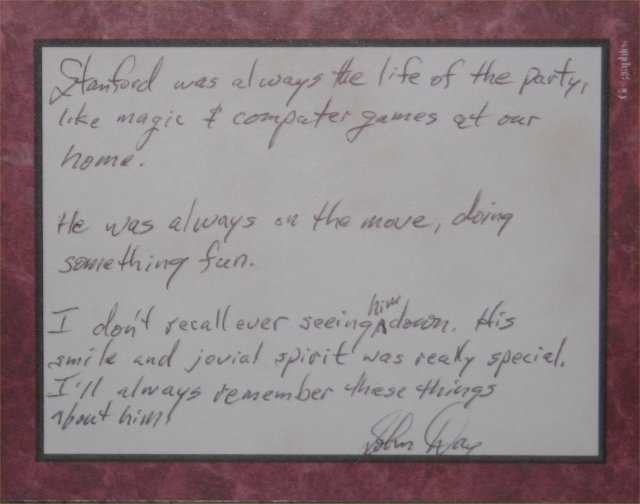 Stanford was always the life of the party,
like magic & computer games at our
home.
He was always on the move, doing
something fun.
I don't recall ever seeing him down. His
smile and jovial spirit was really special.
I'll always remember these things
about him!
John
Geographics